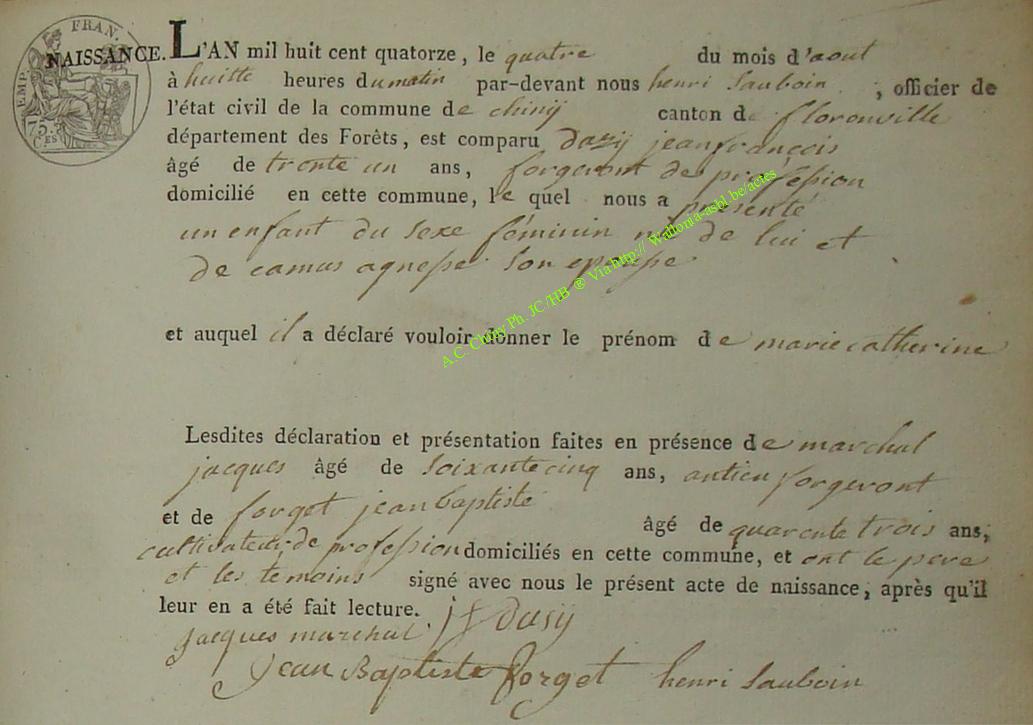 FRAN.
EMP.
75.
CES
NAISSANCE. L'AN mil huit cent quatorze, le quatre du mois d'aout
à huitte heures du matin par-devant nous henri Sauboin, officier de
l'état civil de la commune de chiny canton de floronville
département des Forêts, est comparu dazij jean françois
âgé de trente un ans, forgeront de profession
domicilié en cette commune, le quel nous a présenté
un enfant du sexe féminin né de lui et
de camus agnesse son epouse
et auquel il a déclaré vouloir donner le prénom de marie catherine
Lesdites déclaration et présentation faites en présence de marchal
jacques âgé de soixante cinq ans, antien forgeront
et de forget jean baptiste âgé de quarente trois ans,
cultivateur de profession domiciliés en cette commune, et ont le pere
et les temoins signé avec nous le présent acte de naissance, après qu'il
leur en a été fait lecture. jf Dasij
jacques marchal
Jean Baptiste forget henri Sauboin
A.C. Chiny Ph. JC/HB ® Via http:// Wallonia-asbl.be/actes